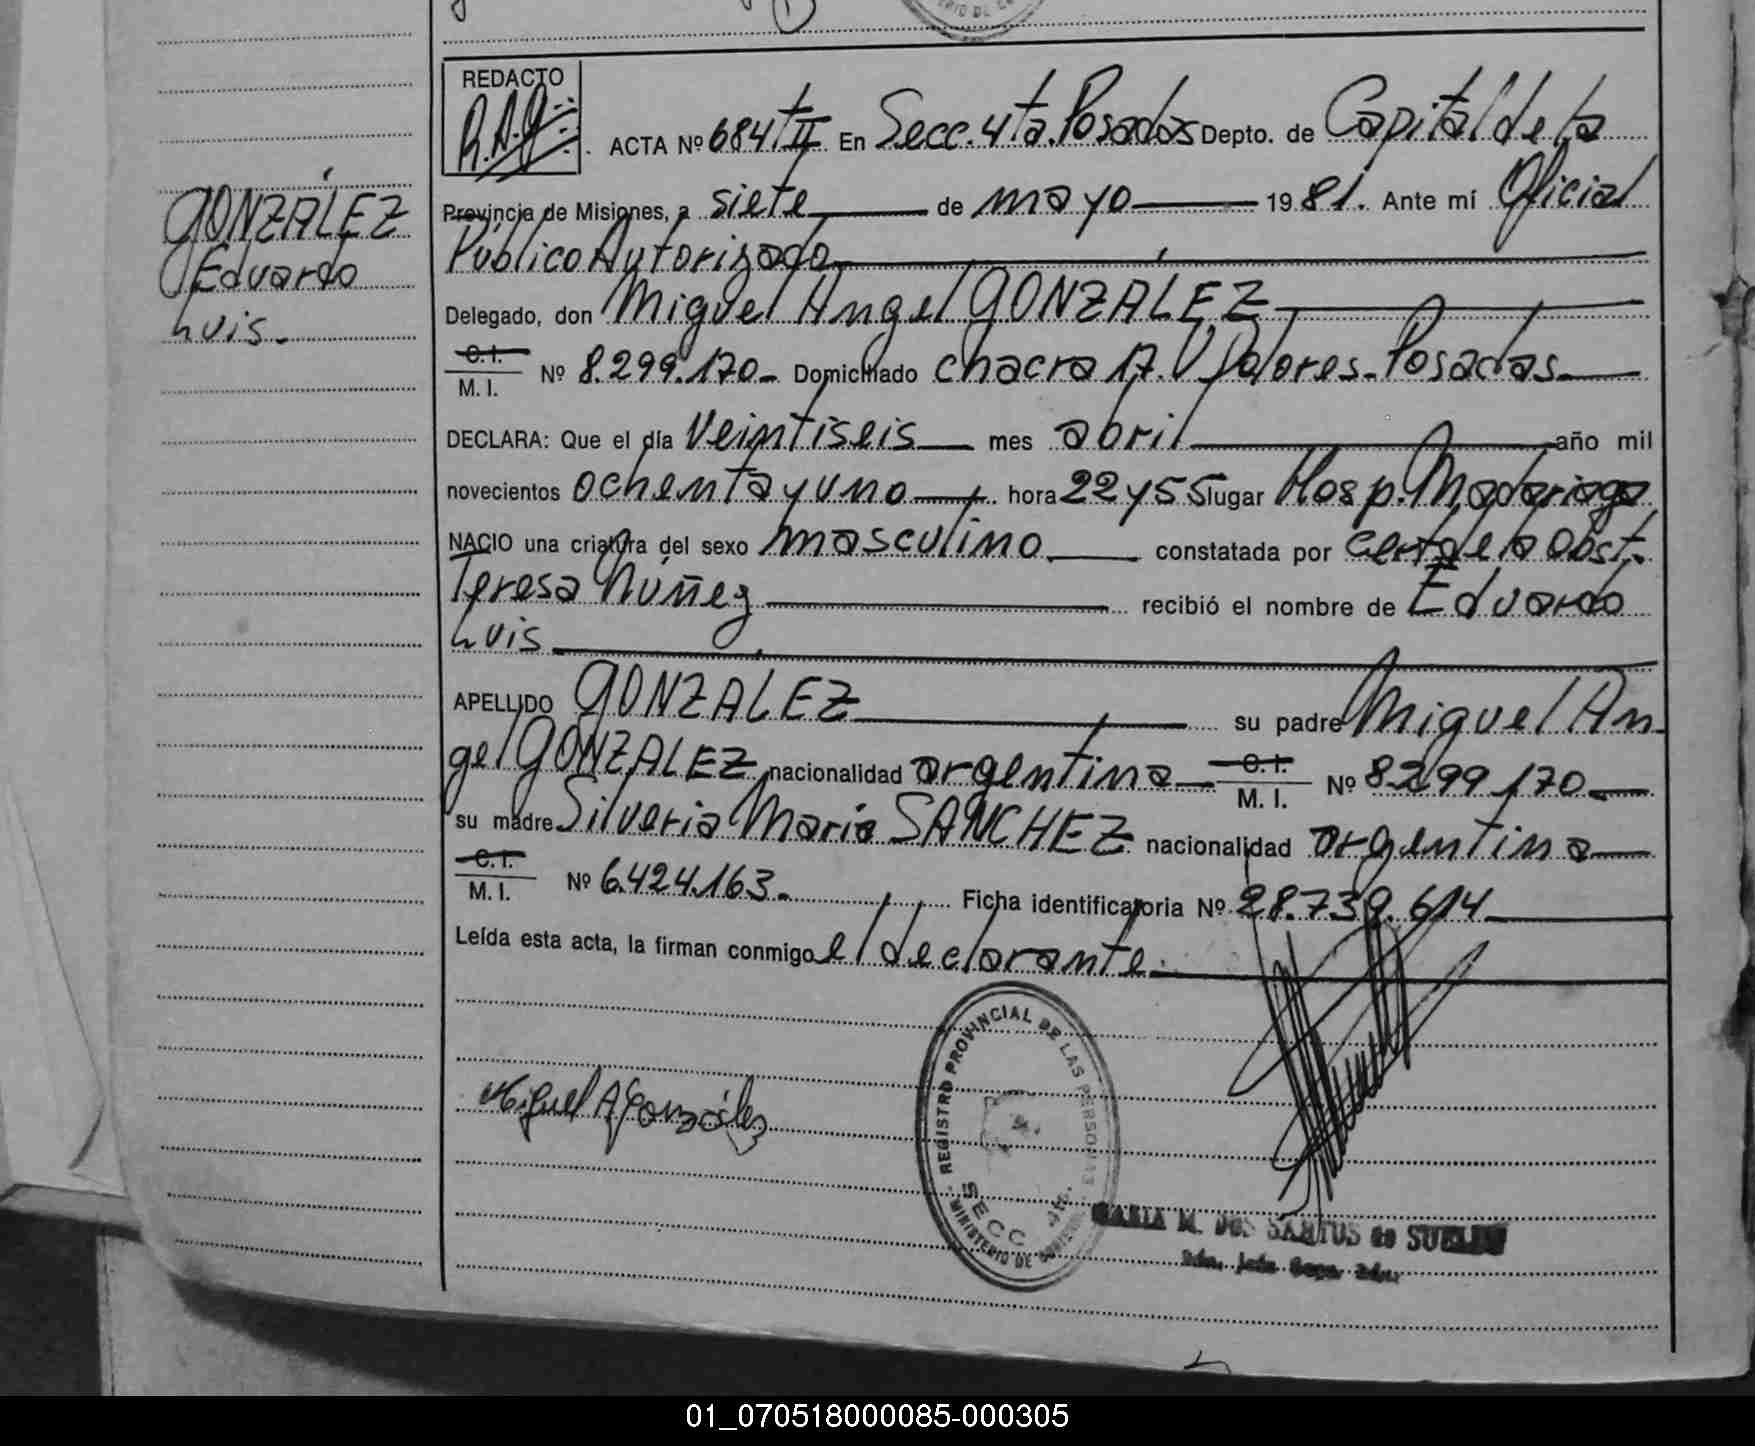 REDACTO
R.A.G.
ACTA Nº 684 tII En Secc. 4ta. Posadas Depto. de Capital de la
Provincia de Misiones, a siete de mayo 1981. Ante mí Oficial
Público Autorizado
Delegado, don Miguel Angel GONZALEZ
C.I.
M. I. Nº 8.299.170- Domiciliado chacra 17. V. Dolores-Posadas
DECLARA: Que el día veintiseis mes abril año mil
novecientos ochenta y uno hora 22 y 55 lugar Hosp. Madariaga
NACIO una criatura del sexo masculino constatada por cert. de la Obst.
Teresa Núñez recibió el nombre de Eduardo
Luis
APELLIDO GONZALEZ su padre Miguel An-
gel GONZALEZ nacionalidad argentina C.I.
M. I. Nº 8.299.170-
su madre Silveria Maria SANCHEZ nacionalidad argentina
C.I.
M. I. Nº 6.424.163- Ficha identificatoria Nº 28.739.614
Leída esta acta, la firman conmigo el declarante.
GONZÁLEZ
Eduardo
Luis.-
Miguel A González
REGISTRO PROVINCIAL DE LAS PERSONAS
SECC 4ta.
MINISTERIO DE GOBIERNO
MARIA M. DOS SANTOS de
01_070518000085-000305